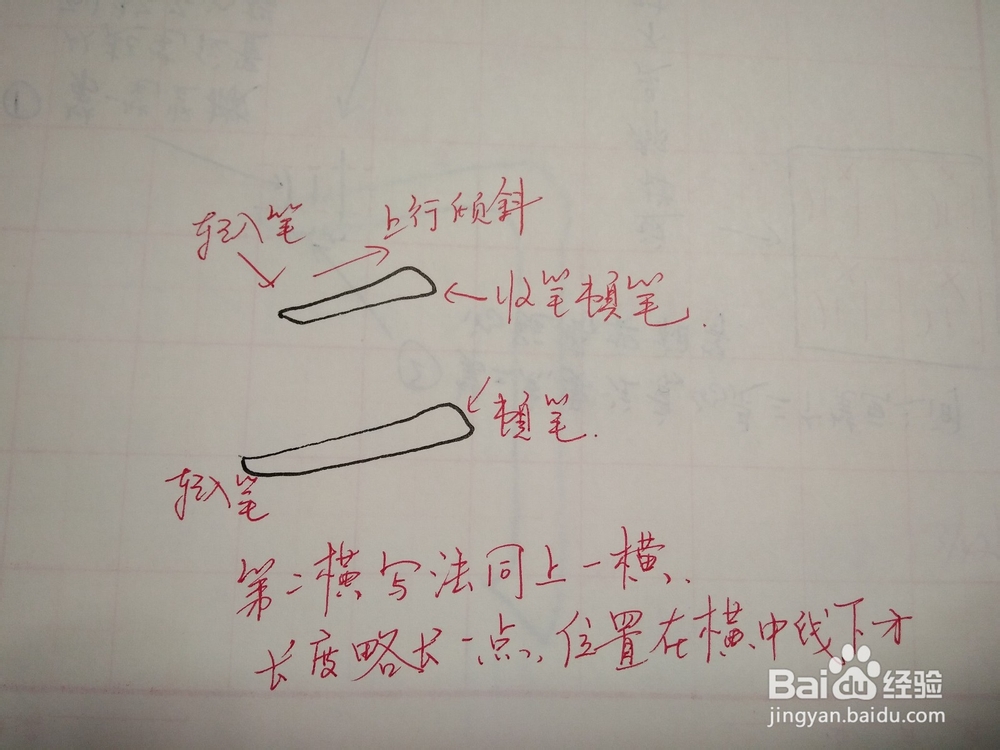 轻入笔
上行倾斜
收笔顿笔.
顿笔.
轻入笔
第二横写法同上一横.
长度略长一点,位置在横中线下方
Baidu经验
jingyan.baidu.com